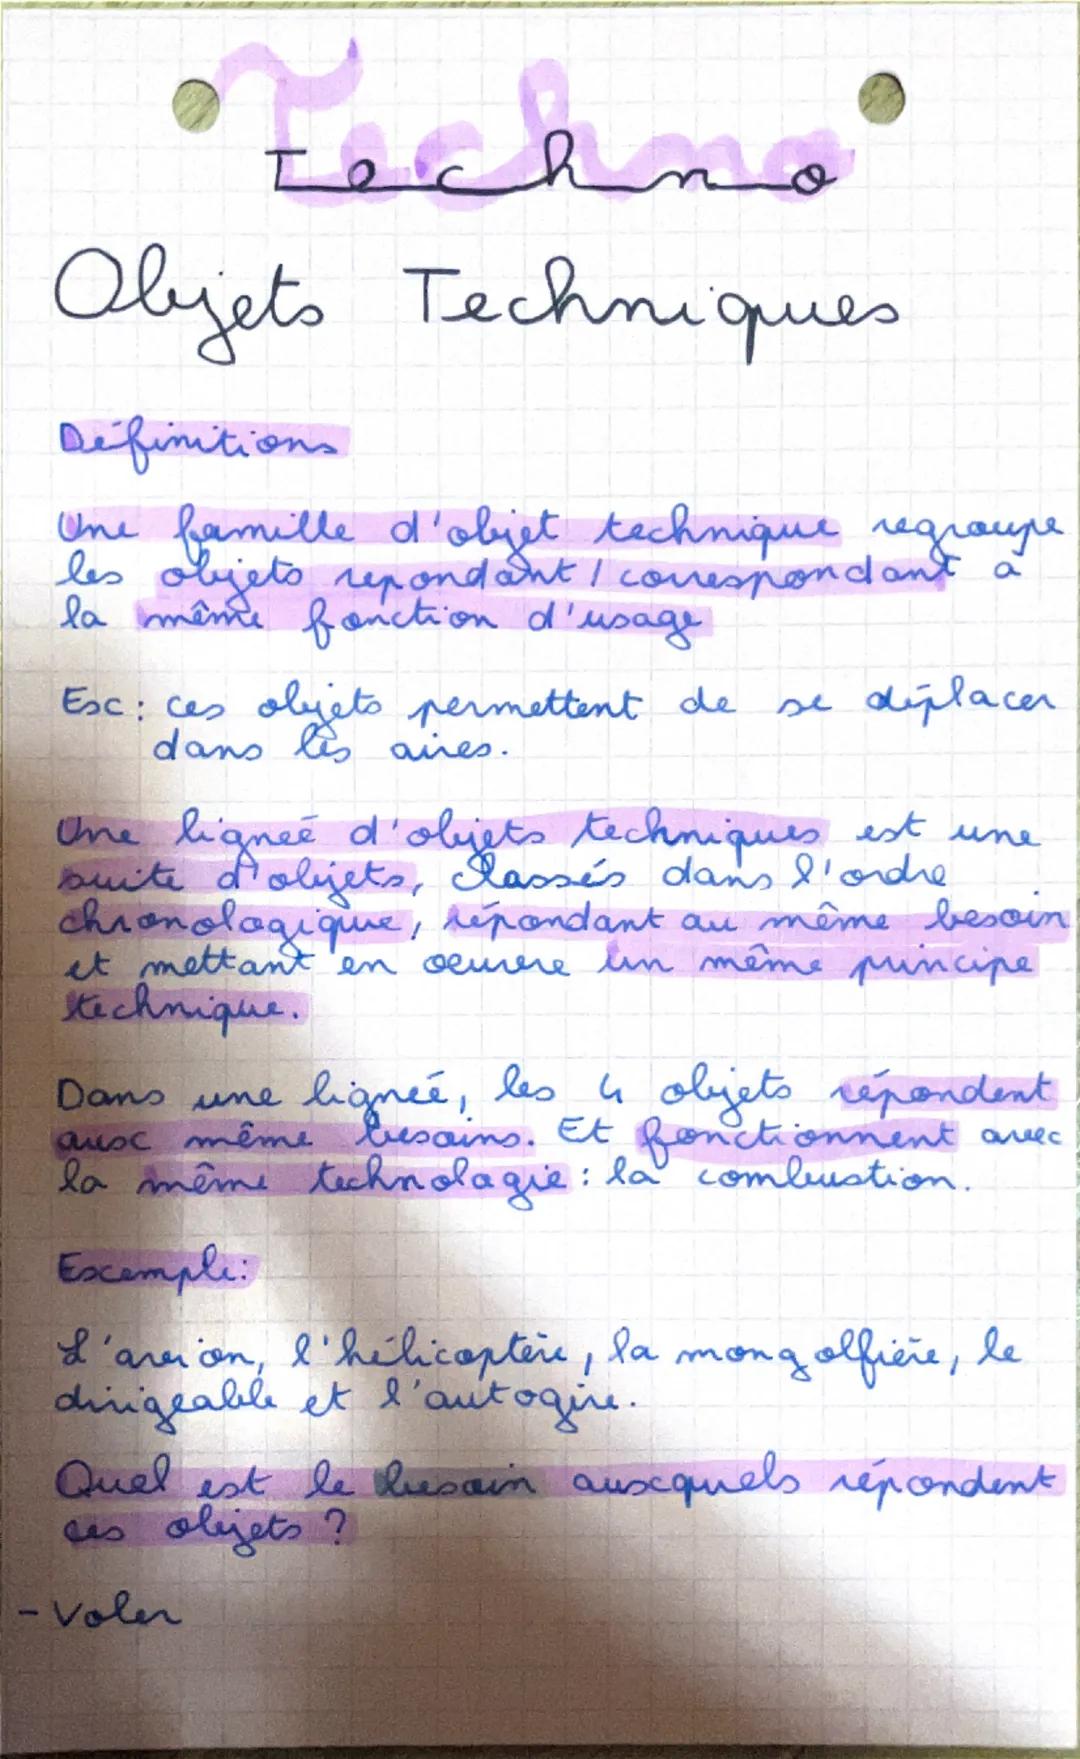 Techno
Objets Techniques
Définitions
Une famille d'objet technique regroupe
les objets repondant / correspondant a
la même fonction d'usage
Ex : ces objets permettent de se déplacer
dans les aires.
Une ligneé d'objets techniques est une
suite d'objets, classés dans l'ordre
chronologique, répondant au même besoin
et mettant en oeuvre un même principe
technique.
Dans une ligneé, les 4 objets répondent
aux même besoins. Et fonctionnent avec
la même technologie : la combustion.
Exemple :
L'avion, l'hélicoptère, la mongolfière, le
dirigeable et l'autogire.
Quel est le besoin auxquels répondent
ces objets ?
- Voler